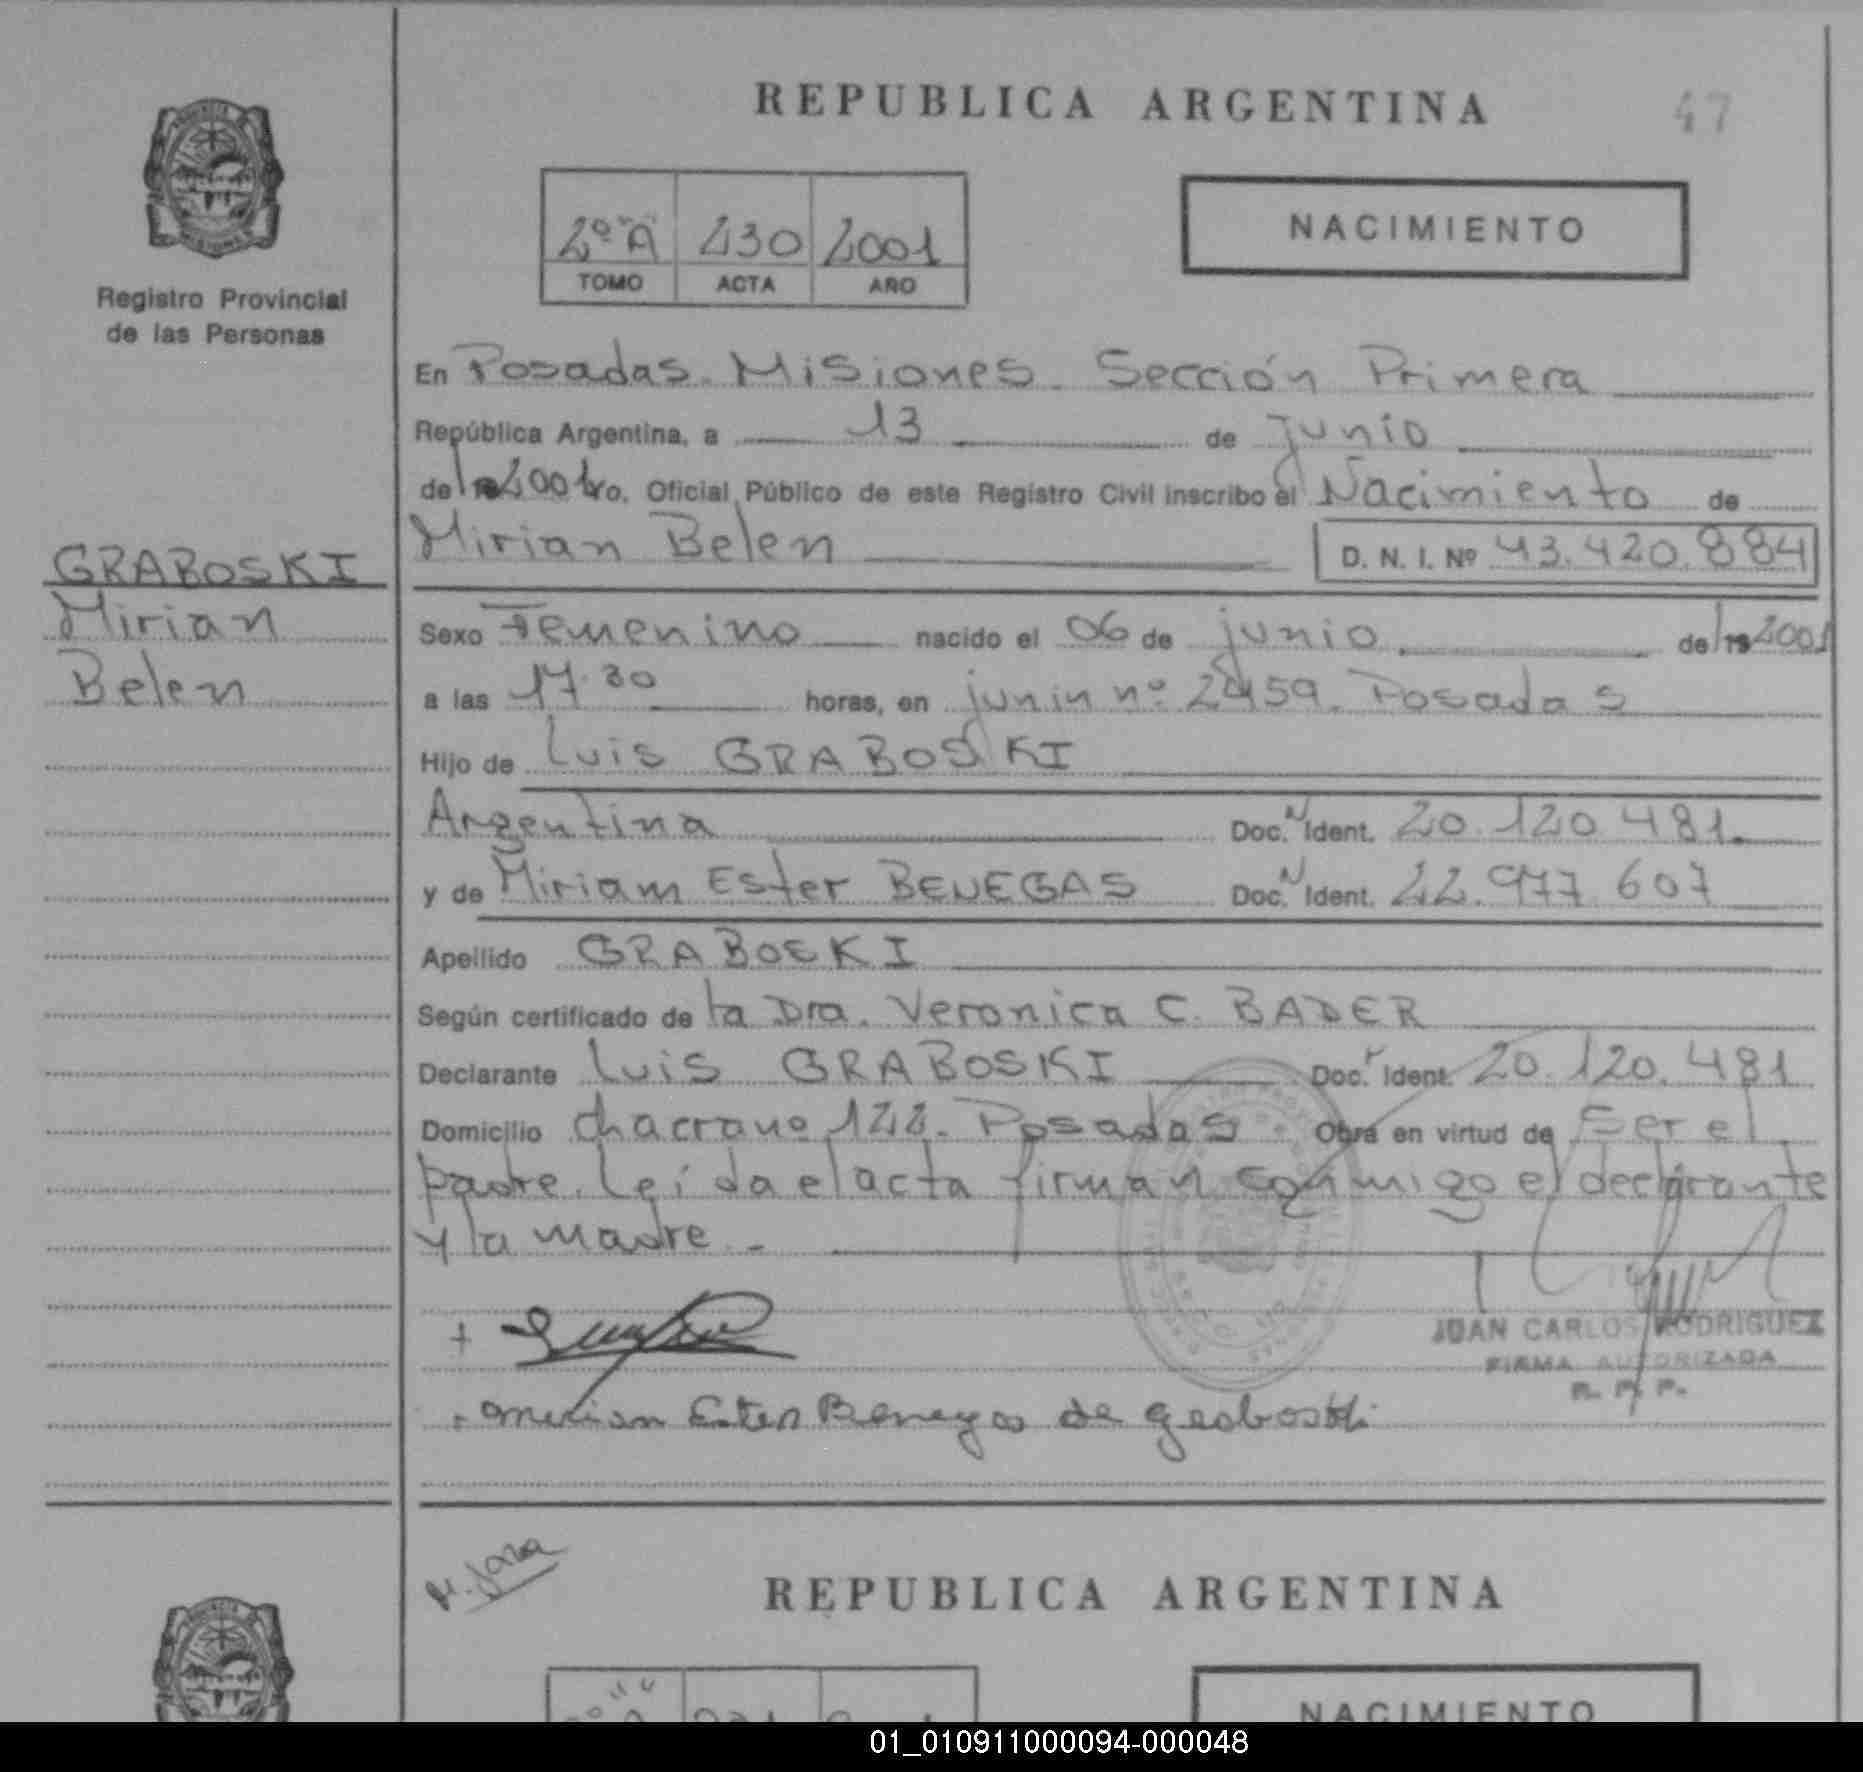 REPUBLICA ARGENTINA
47
2º "A" 230 2001
TOMO ACTA AÑO
NACIMIENTO
Registro Provincial
de las Personas
En Posadas. Misiones. Sección Primera
República Argentina, a 13 de junio
de 2001 yo, Oficial Público de este Registro Civil inscribo el Nacimiento de
Mirian Belen D. N. I. Nº 43.420.884
GRABOSKI
Mirian
Belen
Sexo Femenino nacido el 06 de junio de 19 2001
a las 17.30 horas, en junin nº 2459. Posadas
Hijo de Luis GRABOSKI
Argentina Doc. N Ident. 20.120.481.
y de Miriam Ester BENEGAS Doc. N Ident. 22.977.607
Apellido GRABOSKI
Según certificado de la Dra. Veronica C. BADER
Declarante Luis GRABOSKI Doc. Ident. 20.120.481
Domicilio chacra nº 122. Posadas Obra en virtud de ser el
padre. Leída el acta firman conmigo el declarante
y la madre. -
JUAN CARLOS RODRIGUEZ
FIRMA AUTORIZADA
R. P. P.
Mirian Ester Benegas de Graboski
M. Jara
REPUBLICA ARGENTINA
NACIMIENTO
01_010911000094-000048